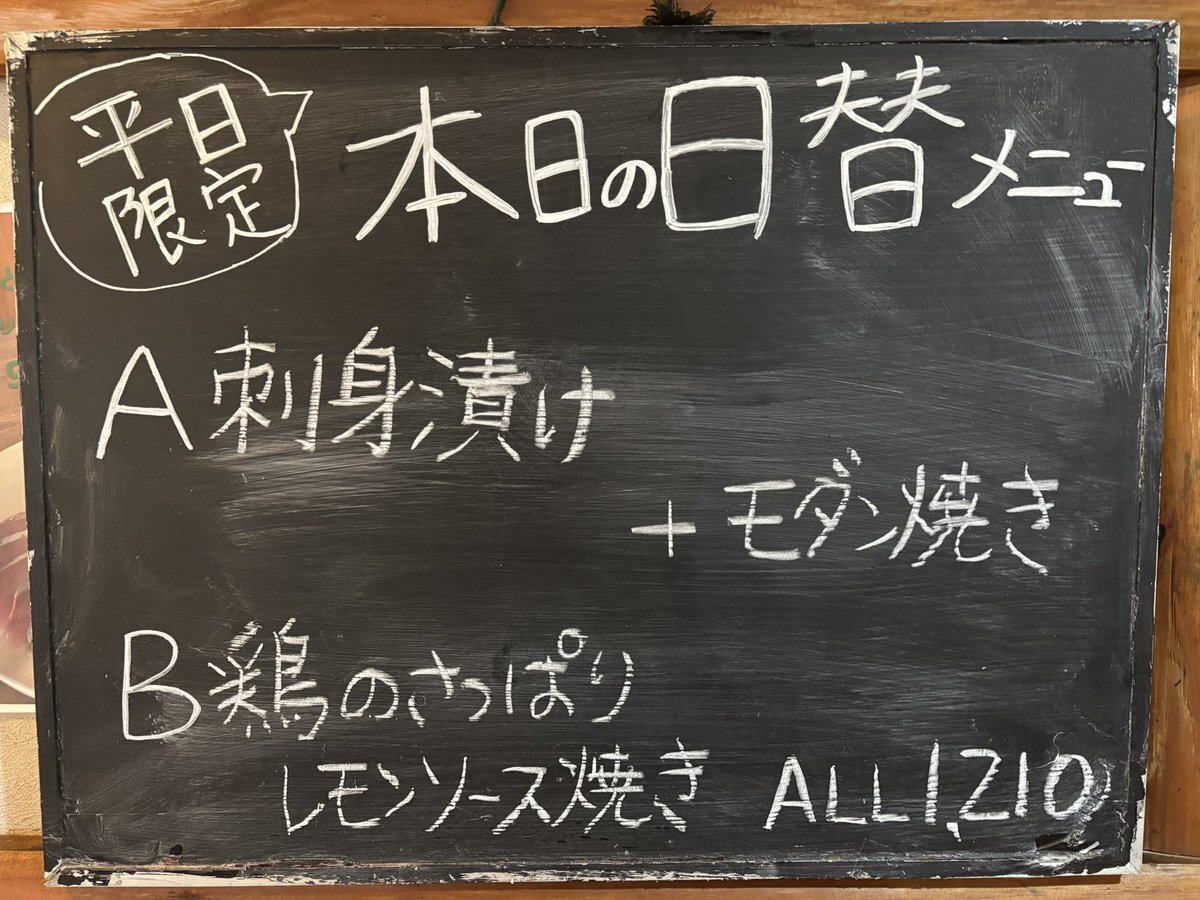 平日
限定
本日の日替メニュー
A 刺身漬け
+モダン焼き
B 鶏のさっぱり
レモンソース焼き ALL 1,210